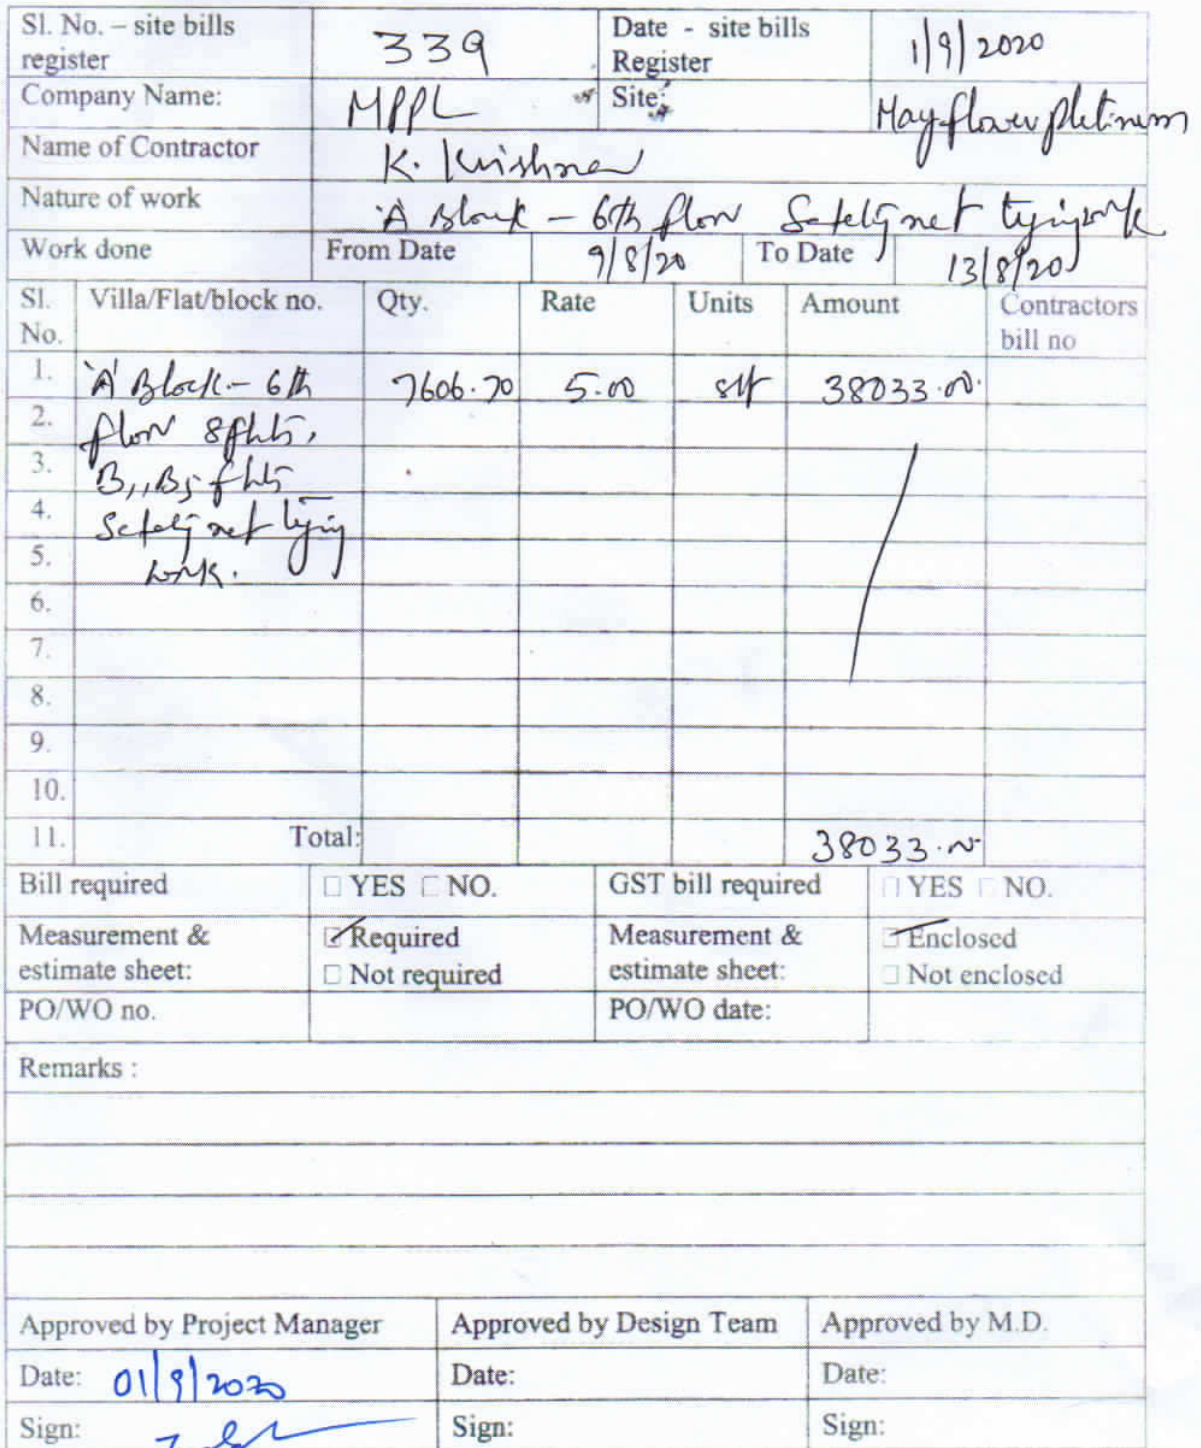 Sl. No. – site bills register 339 Date - site bills Register 1/9/2020
Company Name: MPPL Site: Mayflower platinum
Name of Contractor K. Krishna
Nature of work 'A' Block - 6th floor Safety net tying work
Work done From Date 9/8/20 To Date 13/8/20
Sl. No. Villa/Flat/block no. Qty. Rate Units Amount Contractors bill no
1. 'A' Block - 6th 7606.70 5.00 sft 38033.00
2. floor 8 flats,
3. B1, B5 flats
4. Safety net tying
5. work.
6.
7.
8.
9.
10.
11. Total: 38033.00
Bill required □ YES □ NO. GST bill required □ YES □ NO.
Measurement & estimate sheet: ☑ Required Measurement & estimate sheet: ☑ Enclosed
□ Not required □ Not enclosed
PO/WO no. PO/WO date:
Remarks :
Approved by Project Manager Approved by Design Team Approved by M.D.
Date: 01/9/2020 Date: Date:
Sign: Sign: Sign: